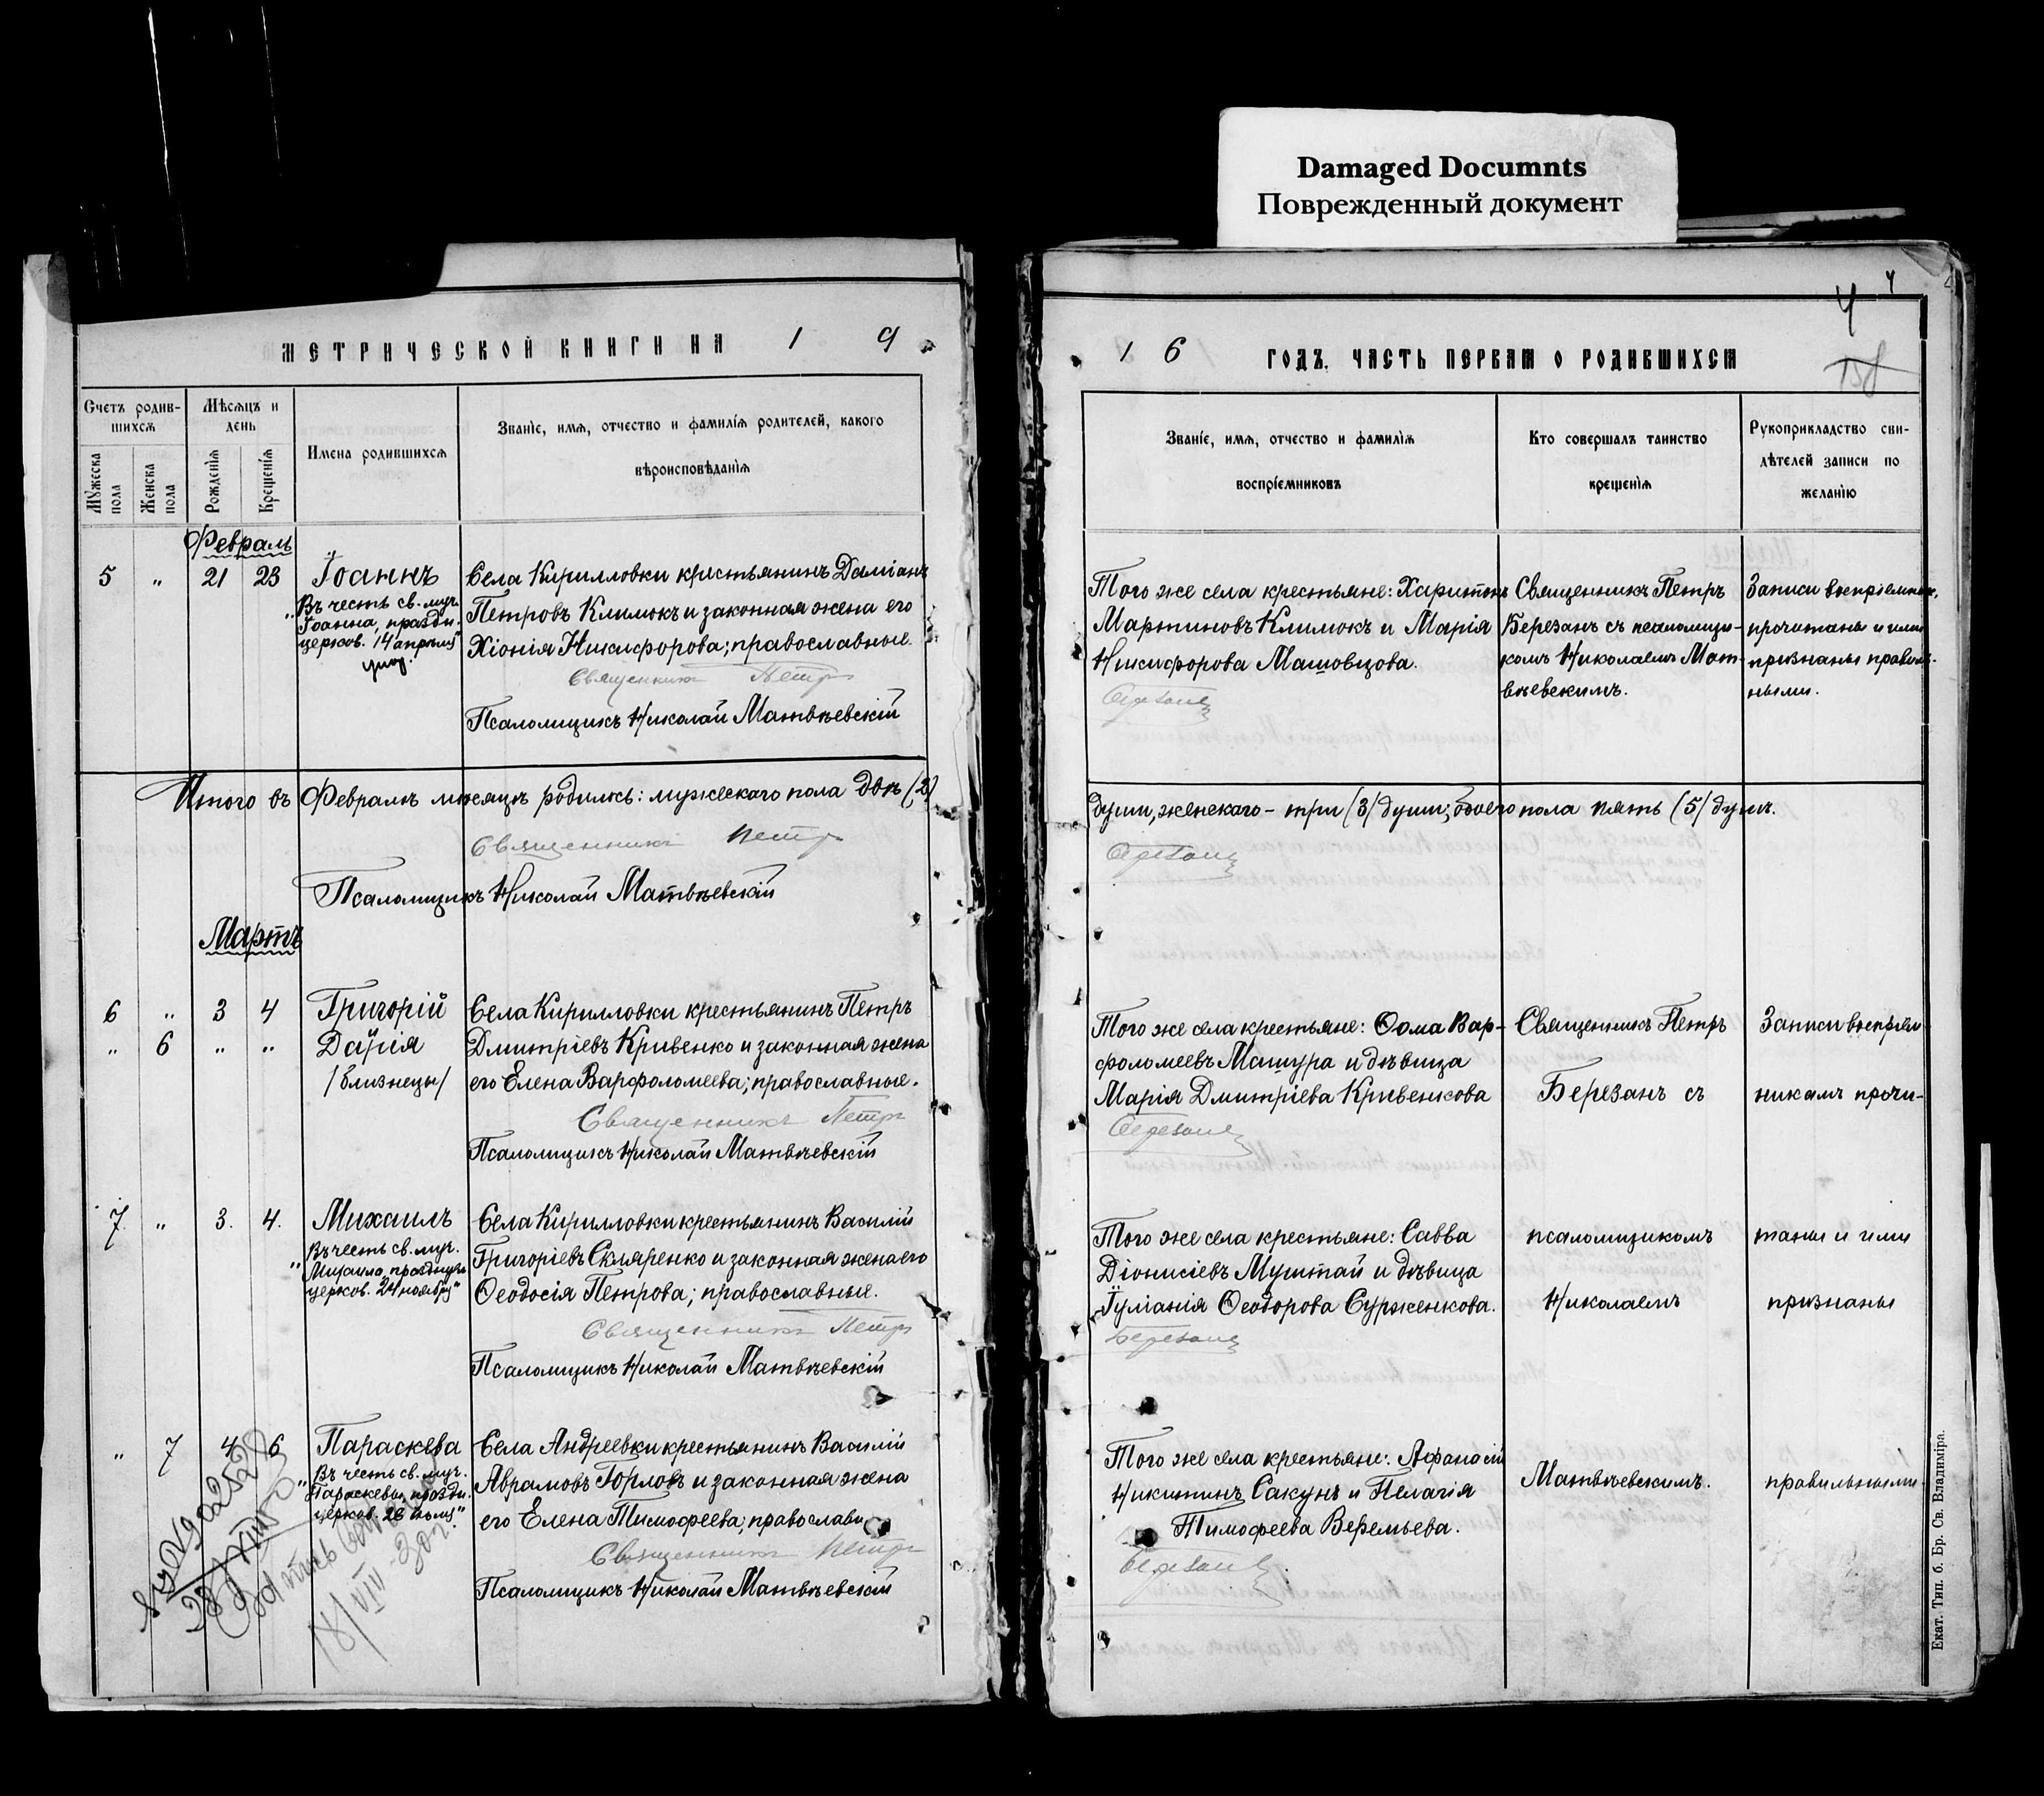 Damaged Documnts
Поврежденный документ
МЕТРИЧЕСКОЙ КНИГИ НА 1 9
Счетъ родив-
шихсѧ
Мѣсѧцъ и
день
Мꙋжеска
пола
Женска
пола
Рожденїѧ
Крещенїѧ
Имена родившихсѧ
Званїе, имѧ, отчество и фамилїѧ родителей, какого
вѣроисповѣданїѧ
Февраль
5 " 21 23 Іоаннъ
"Въ честь св. муч.
Іоанна, праздн.
церков. 14 апрѣля"
Села Кирилловки крестьянинъ Даміанъ
Петровъ Климокъ и законная жена его
Хіонія Никифорова; православные.
Священникъ Петръ
Псаломщикъ Николай Матвѣевскій
Итого въ Февралѣ мѣсяцѣ родилось: мужескаго пола двѣ (2)
Священникъ Петръ
Псаломщикъ Николай Матвѣевскій
Мартъ
6 " 3 4 Григорій
" 6 " " Дарія
/близнецы/
Села Кирилловки крестьянинъ Петръ
Дмитріевъ Кривенко и законная жена
его Елена Варфоломеева; православные.
Священникъ Петръ
Псаломщикъ Николай Матвѣевскій
7. " 3. 4. Михаилъ
"Въ честь св. муч.
Михаила, празднуем.
церков. 24 ноября"
Села Кирилловки крестьянинъ Василій
Григоріевъ Скляренко и законная жена его
Ѳеодосія Петрова; православные.
Священникъ Петръ
Псаломщикъ Николай Матвѣевскій
" 7 4 6 Параскева
"Въ честь св. муч.
Параскевы, праздн.
церков. 26 іюля"
Села Андреевки крестьянинъ Василій
Аврамовъ Горловъ и законная жена
его Елена Тимофеева; православн
Священникъ Петръ
Псаломщикъ Николай Матвѣевскій
18/VIII
4 4
1 6 ГОДЪ. ЧАСТЬ ПЕРВАѦ О РОДИВШИХСѦ
Званїе, имѧ, отчество и фамилїѧ
воспрїемниковъ
Кто совершалъ таинство
крещенїѧ
Рукоприкладство сви-
дѣтелей записи по
желанїю
Того же села крестьяне: Харитонъ
Мартиновъ Климокъ и Марія
Никифорова Машовцова.
Березанъ
Священникъ Петръ
Березанъ съ псаломщи-
комъ Николаемъ Мат-
вѣевскимъ.
Записи воспріемник.
прочитаны и ими
признаны правиль-
ными.
души, женскаго - три (3) души; обоего пола пять (5) душъ.
Березанъ
Того же села крестьяне: Ѳома Вар-
фоломеевъ Машура и дѣвица
Марія Дмитріева Кривенкова
Березанъ
Священникъ Петръ
Березанъ съ
Записи воспріем
никамъ прочи-
Того же села крестьяне: Савва
Діонисіевъ Муштай и дѣвица
Іуліанія Ѳеодорова Сурженкова.
Березанъ
псаломщикомъ
Николаемъ
таны и ими
признаны
Того же села крестьяне: Афанасій
Никитинъ Сакунъ и Пелагія
Тимофеева Веремьева.
Березанъ
Матвѣевскимъ.
правильными.
Екат. Тип. б. Бр. Св. Владиміра.